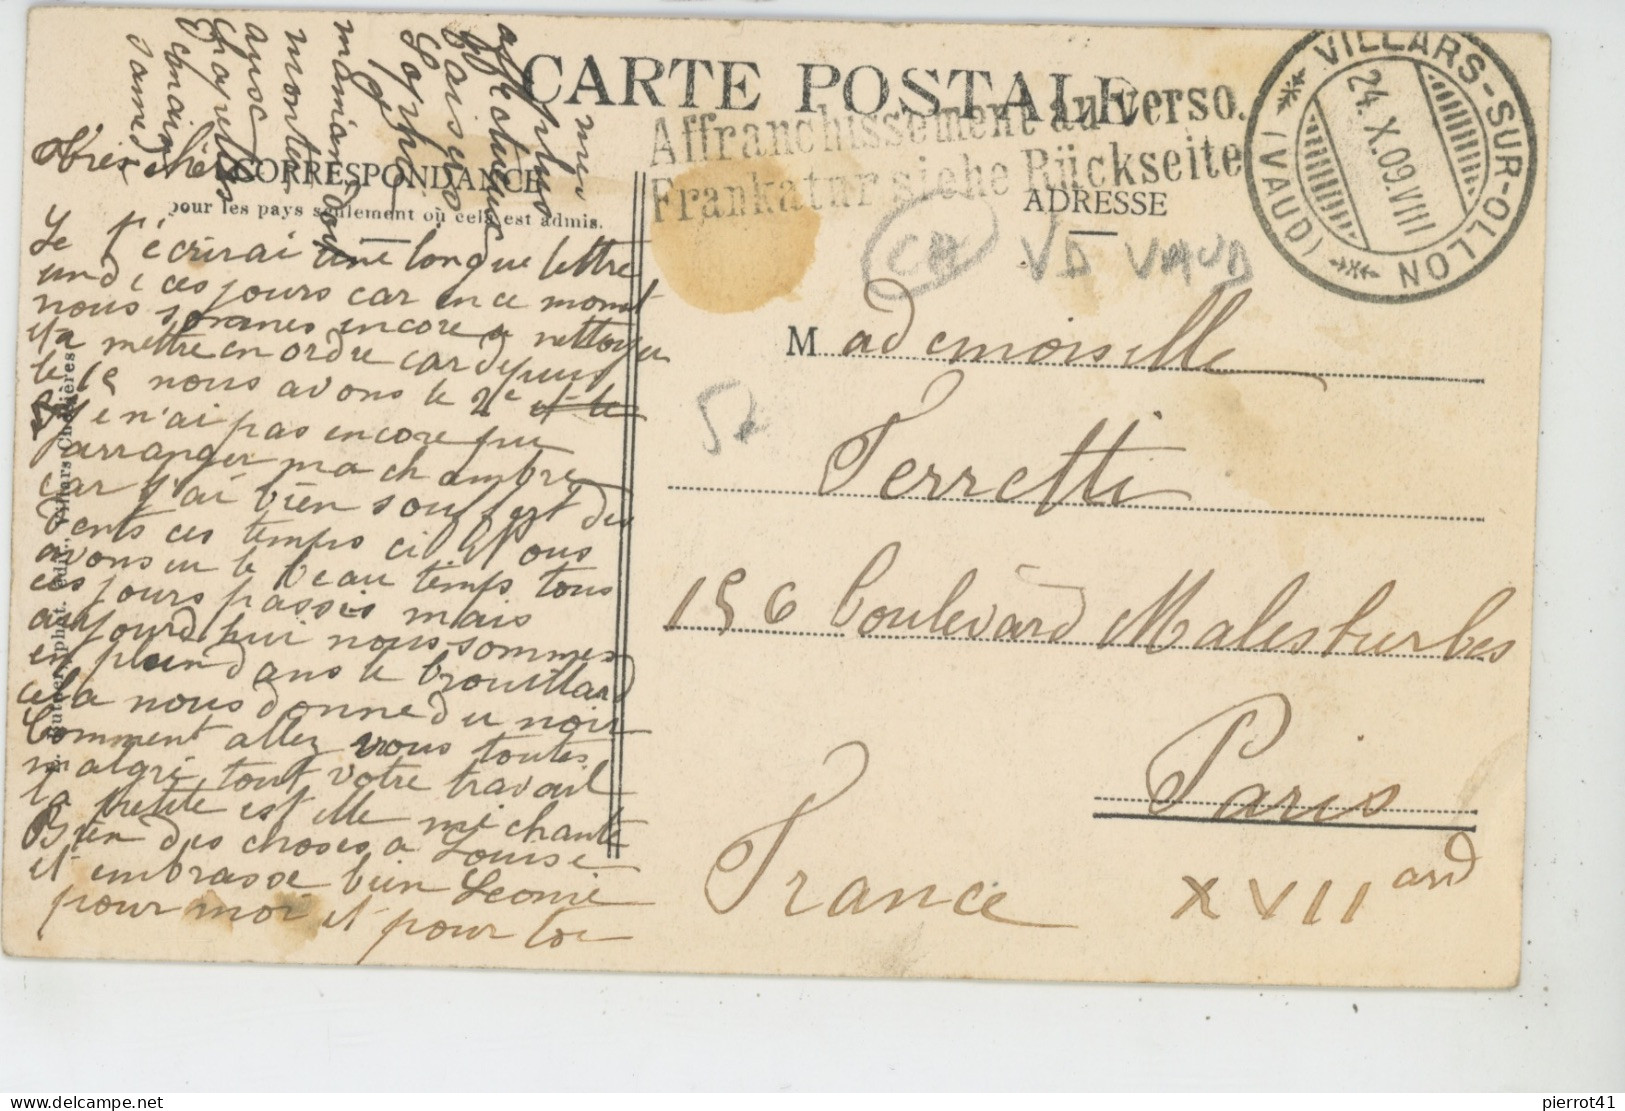 CARTE POSTALE
Affranchissement au verso.
Frankatur siehe Rückseite
VILLARS-SUR-OLLON
(VAUD)
24.X.09.VIII
CORRESPONDANCE
pour les pays seulement où cela est admis.
ADRESSE
CH VD VAUD
Mademoiselle
Ferretti
156 Boulevard Malesherbes
Paris
France XVII ard
5-
Très chère
Je t'écrirai une longue lettre
un de ces jours car en ce moment
nous sommes encore a nettoyer
et a mettre en ordre car depuis
le 15 nous avons le 2e et le
Je n'ai pas encore pu
arranger ma chambre
car j'ai bien souffert des
dents ces temps ci Nous
avons eu le beau temps tous
ces jours passés mais
aujourd'hui nous sommes
en plein dans le brouillard
cela nous donne du noir
Comment allez vous toutes
malgré tout votre travail
La petite est elle méchante
Bien des choses a Louise
et embrasse bien Leonie
pour moi et pour toi
mes
plus
affectueux
baisers
Sophie
maman
avec
édit., Villars-Chesières
pierrot41